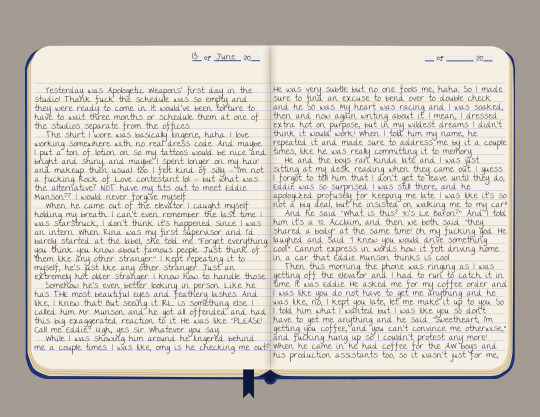 13 of June 20__
Yesterday was Apologetic Weapons' first day in the
studio! Thank fuck the schedule was so empty and
they were ready to come in. It would've been torture to
have to wait three months or schedule them at one of
the studios separate from the offices
The shirt I wore was basically lingerie, haha. I love
working somewhere with no real dress code. And maybe
I put a ton of lotion on so my tattoos would be nice and
bright and shiny, and maybe I spent longer on my hair
and makeup than usual too. I felt kind of silly - I'm not
a fucking Rock of Love contestant lol - but what was
the alternative? NOT have my tits out to meet Eddie
Munson?? I would never forgive myself
When he came out of the elevator I caught myself
holding my breath. I can't even remember the last time I
was starstruck, I don't think it's happened since I was
an intern. When Rina was my first supervisor and I'd
barely started at the label, she told me "Forget everything
you think you know about famous people. Just think of
them like any other stranger." I kept repeating it to
myself, he's just like any other stranger. Just an
extremely hot older stranger. I know how to handle those
Somehow he's even better looking in person. Like he
has THE most beautiful eyes and feathery lashes. And
like, I knew that! But seeing it RL is something else. I
called him Mr. Munson and he got all offended and had
this big exaggerated reaction to it. He was like "PLEASE!
Call me Eddie!" Ugh, yes sir. Whatever you say
While I was showing him around he lingered behind
me a couple times. I was like, omg is he checking me out?
__ of ______ 20__
He was very subtle but no one fools me, haha. So I made
sure to find an excuse to bend over to double check
and he so was. My heart was racing and I was soaked,
then and now again writing about it. I mean, I dressed
extra hot on purpose, but in my wildest dreams I didn't
think it would work! When I told him my name, he
repeated it and made sure to address me by it a couple
times, like he was really committing it to memory
He and the boys ran kinda late and I was just
sitting at my desk reading when they came out. I guess
I forgot to tell him that I don't get to leave until they do,
Eddie was so surprised I was still there, and he
apologized profusely for keeping me late. I was like it's so
not a big deal, but he insisted on walking me to my car!
And he said "What is this? '70's Le Baron?" And I told
him it's a '72 Acclaim, and then we both said "they
shared a body" at the same time! Oh my fucking god. He
laughed and said "I knew you would drive something
cool" Cannot express in words how it felt driving home
in a car that Eddie Munson thinks is cool
Then this morning the phone was ringing as I was
getting off the elevator and I had to run to catch it in
time. It was Eddie. He asked me for my coffee order and
I was like you do not have to get me anything, and he
was like, no, I kept you late, let me make it up to you. So
I told him what I wanted but I was like you so don't
have to get me anything and he said "Sweetheart, I'm
getting you coffee, and you can't convince me otherwise,"
and fucking hung up so I couldn't protest any more!
When he came in he had coffee for the AW boys and
his production assistants too, so it wasn't just for me,